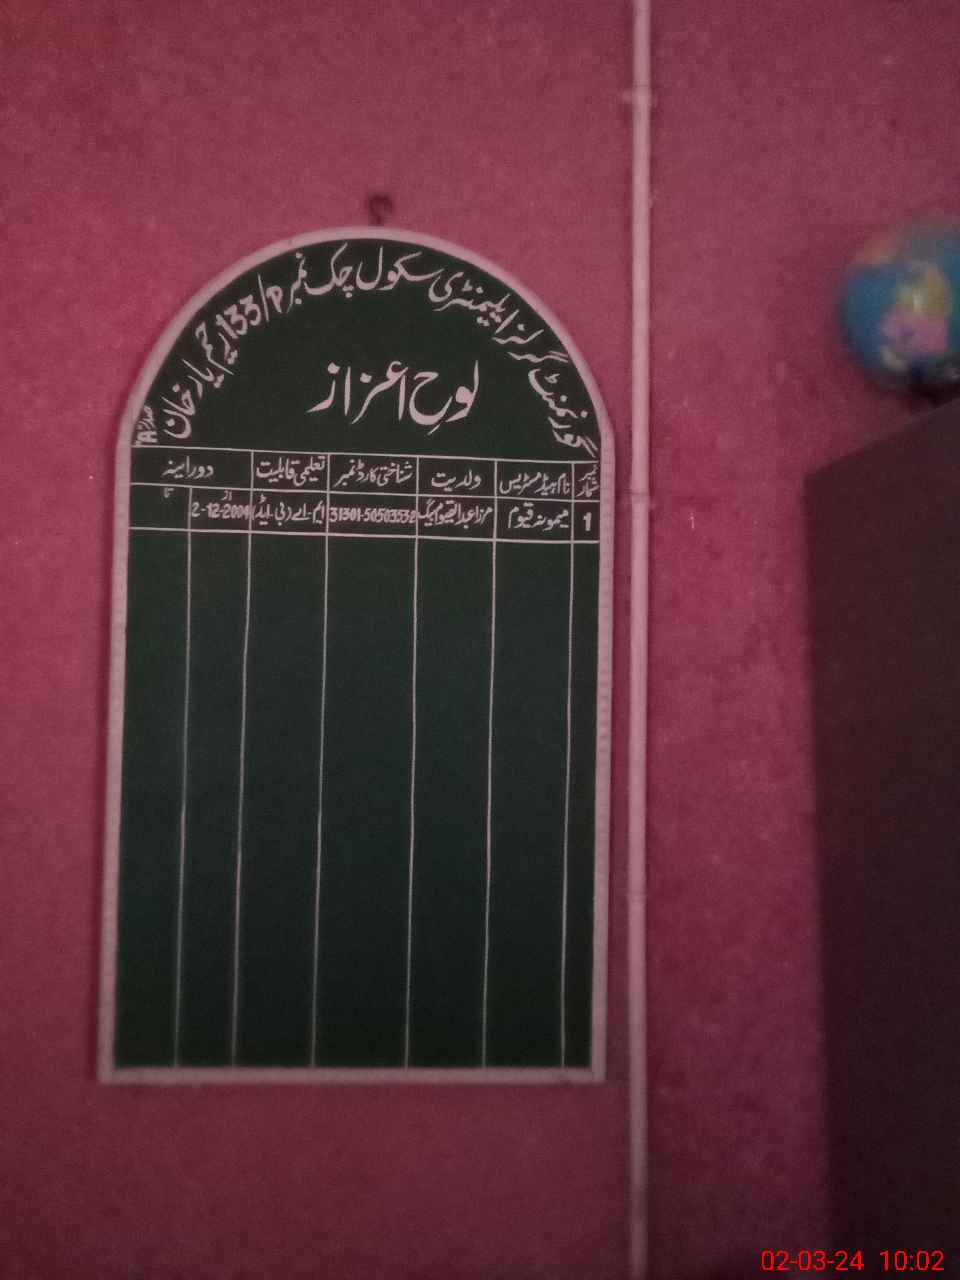 گورنمنٹ گرلز ایلیمنٹری سکول چک نمبر 133/P رحیم یار خان
صدر "A"
لوحِ اعزاز
نمبر شمار نام ہیڈ مسٹریس ولدیت شناختی کارڈ نمبر تعلیمی قابلیت دورانیہ
1 میمونہ قیوم مرزا عبدالقیوم بیگ 31301-5050353-2 ایم-اے (بی-ایڈ) از 2-12-2004 تا
02-03-24 10:02